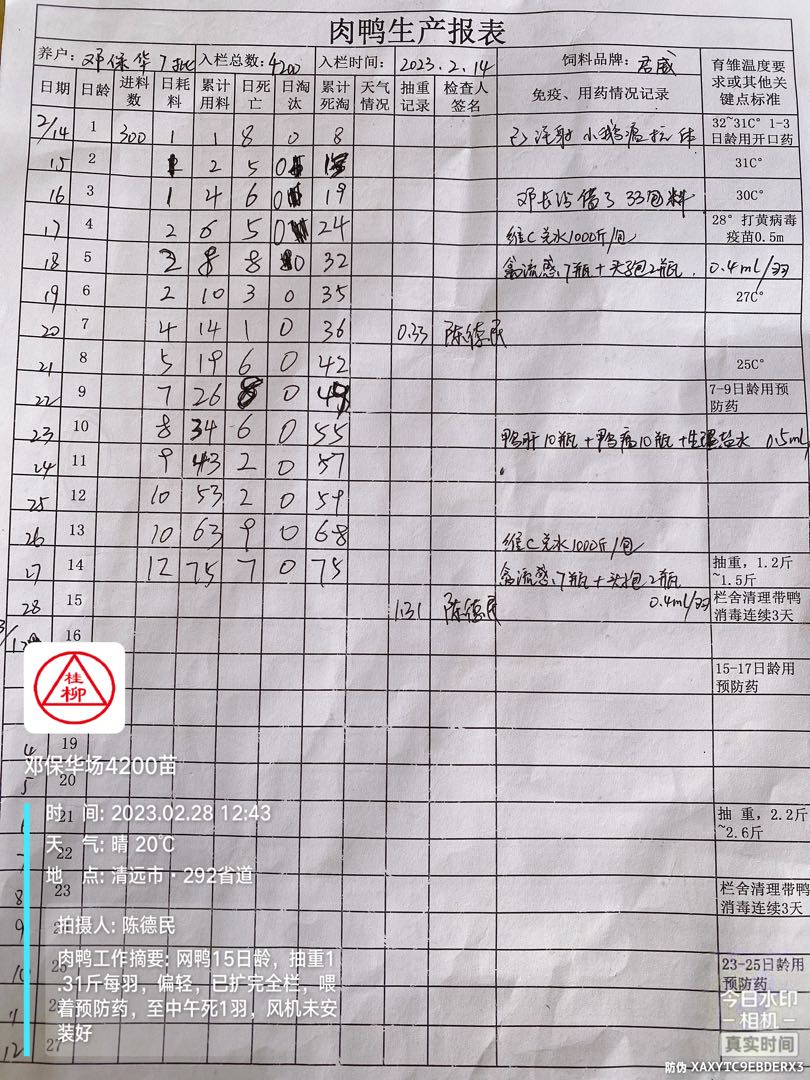 肉鸭生产报表
养户: 邓保华7批 入栏总数: 4200 入栏时间: 2023.2.14 饲料品牌: 君威 育雏温度要求或其他关键点标准
日期 日龄 进料数 日耗料 累计用料 日死亡 日淘汰 累计死淘 天气情况 抽重记录 检查人签名 免疫、用药情况记录
2/14 1 300 1 1 8 0 8 已注射小鹅瘟抗体 32~31C° 1-3日龄用开口药
15 2 1 2 5 0 13 31C°
16 3 1 4 6 0 19 邓长沿借了33包料 30C°
17 4 2 6 5 0 24 维C兑水1000斤/包 28° 打黄病毒疫苗0.5m
18 5 2 8 8 0 32 禽流感7瓶+头孢2瓶. 0.4ml/羽
19 6 2 10 3 0 35 27C°
20 7 4 14 1 0 36 0.33 陈德民
21 8 5 19 6 0 42 25C°
22 9 7 26 8 0 49 7-9日龄用预防药
23 10 8 34 6 0 55 鸭肝10瓶+鸭病10瓶+生理盐水 0.5ml
24 11 9 43 2 0 57
25 12 10 53 2 0 59
26 13 10 63 9 0 68 维C兑水1000斤/包
27 14 12 75 7 0 75 禽流感7瓶+头孢2瓶 抽重，1.2斤~1.5斤
28 15 1.31 陈德民 0.4ml/羽 栏舍清理带鸭消毒连续3天
16
15-17日龄用预防药
桂柳
4 19
邓保华场4200苗
5 20
时 间: 2023.02.28 12:43
21 抽 重，2.2斤~2.6斤
天 气: 晴 20℃
22
地 点: 清远市·292省道
8 23 栏舍清理带鸭消毒连续3天
9
拍摄人: 陈德民
肉鸭工作摘要: 网鸭15日龄，抽重1
10 25 23-25日龄用预防药
.31斤每羽，偏轻，已扩完全栏，喂
着预防药，至中午死1羽，风机未安
装好
12 27
今日水印
-相机-
真实时间
防伪 XAXYTC9EBDERX3